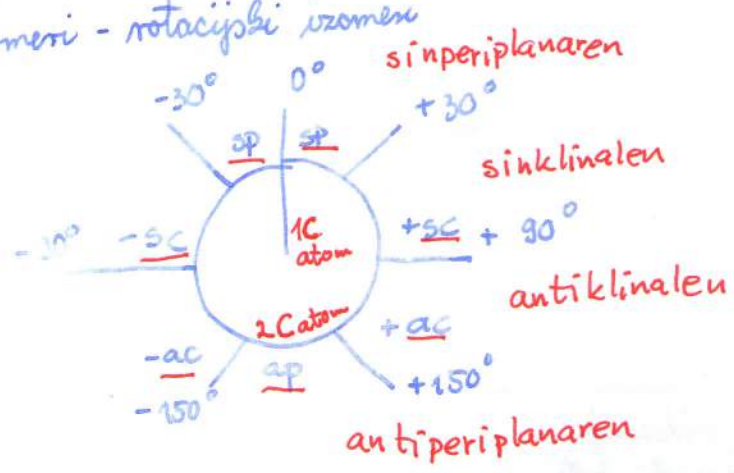 meri - rotacijski izomeri
sinperiplanaren
0°
-30°
+30°
sp sp
sinklinalen
-sc
1C
atom
+sc + 90°
antiklinalen
2C atom
+ac
-ac
ap
-150°
+150°
antiperiplanaren